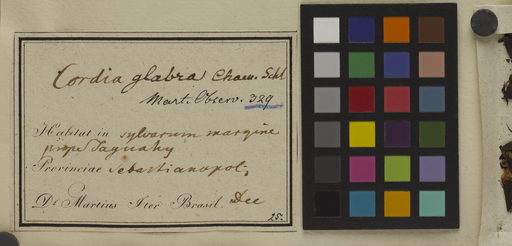 Cordia glabra Cham. Schl
Mart. Observ. 329
Habitat in sylvarum margine
prope Taguahy
Provinciae Sebastianopol.
Dr Martius Iter Brasil. Dec
25.